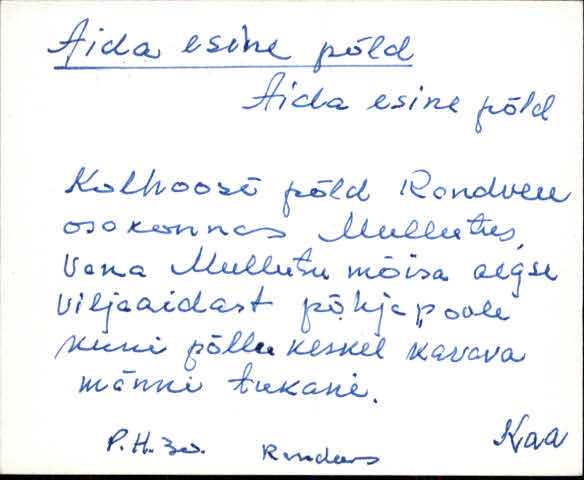 Aida esine põld
Aida esine põld
Kolhoosi põld Randvere
osakonnas Mullutus,
Vana Mullutu mõisa aegse
viljaaidast põhja poole
kuni põllu keskel kasvava
männi tukani.
P.H. Kaa